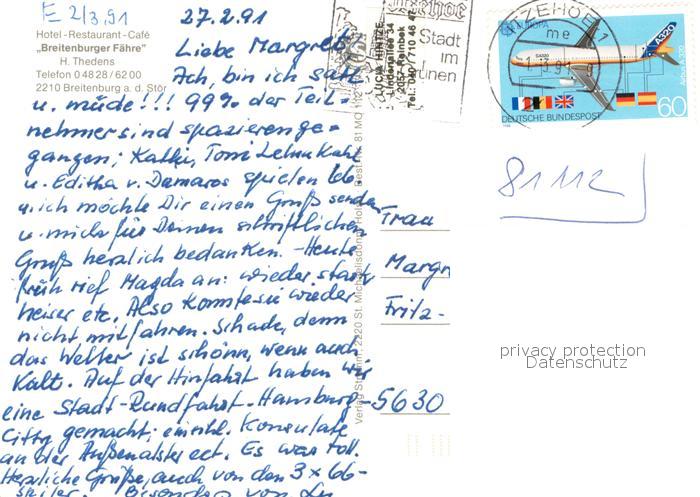 E 2/3.91
27.2.91
Hotel-Restaurant-Café
„Breitenburger Fähre"
H. Thedens
Telefon 0 48 28 / 62 00
2210 Breitenburg a. d. Stör
Liebe Margret!
Ach, bin ich satt
u. müde!!! 99% der Teil-
nehmer sind spazieren ge-
gangen; Kathi, Toni
u. Editha v. Damaros spielen 66
u. ich möchte Dir einen Gruß senden
u. mich für Deinen schriftlichen
Gruß herzlich bedanken. - Heute
früh rief Magda an: wieder stark
heiser etc. Also konnte sie wieder
nicht mitfahren. Schade, denn
das Wetter ist schön, wenn auch
kalt. Auf der Hinfahrt haben wir
eine Stadt-Rundfahrt-Hamburg-
City gemacht; einschl. Konsulate
an der Außenalster ect. Es war toll.
Herzliche Grüße, auch von den 3 x 66-
Stadt
im
Grünen
LUCIA HINTZE
Lindenallee 34
2057 Reinbek
Tel.: 040 / 710 46 47
ITZEHOE 1
me
-1.-3.91-9
EUROPA
A320
Airbus A 320
DEUTSCHE BUNDESPOST
60
81112
Frau
Margr
Fritz-
5630
privacy protection
Datenschutz